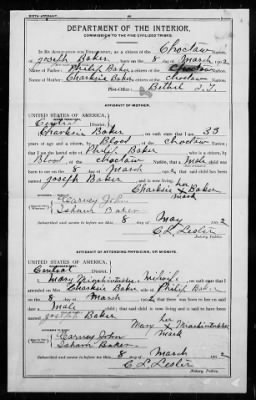 BIRTH AFFIDAVIT.
DEPARTMENT OF THE INTERIOR.
COMMISSION TO THE FIVE CIVILIZED TRIBES.
IN RE APPLICATION FOR ENROLLMENT, as a citizen of the Choctaw Nation, of
Joseph Baker, born on the 8 day of March, 1902
Name of Father: Philip Baker a citizen of the Choctaw Nation.
Name of Mother: Baker a citizen of the Choctaw Nation.
Post-Office: Bethel I.T.
AFFIDAVIT OF MOTHER.
UNITED STATES OF AMERICA,
Central District.
I, Baker, on oath state that I am 33
years of age and a citizen, by Blood, of the Choctaw Nation;
that I am the lawful wife of Philip Baker, who is a citizen, by
Blood, of the Choctaw Nation, that a male child was
born to me on the 8 day of March, 1902, that said child has been
named Joseph Baker, and is now living.
her
x Baker
mark
Carney John
Isham Baker
Subscribed and sworn to before me this 8 day of May, 1902
C. L. Lester
Notary Public.
AFFIDAVIT OF ATTENDING PHYSICIAN, OR MIDWIFE.
UNITED STATES OF AMERICA,
Central District.
I, Mary, a Midwife, on oath state that I
attended on Mrs. Baker, wife of Philip Baker
on the 8 day of March, 1902, that there was born to her on said
date a Male child; that said child is now living and is said to have been
named Joseph Baker
her
Mary x
mark
Carney John
Isham Baker
Subscribed and sworn to before me this 8 day of March, 1902
C. L. Lester
Notary Public.